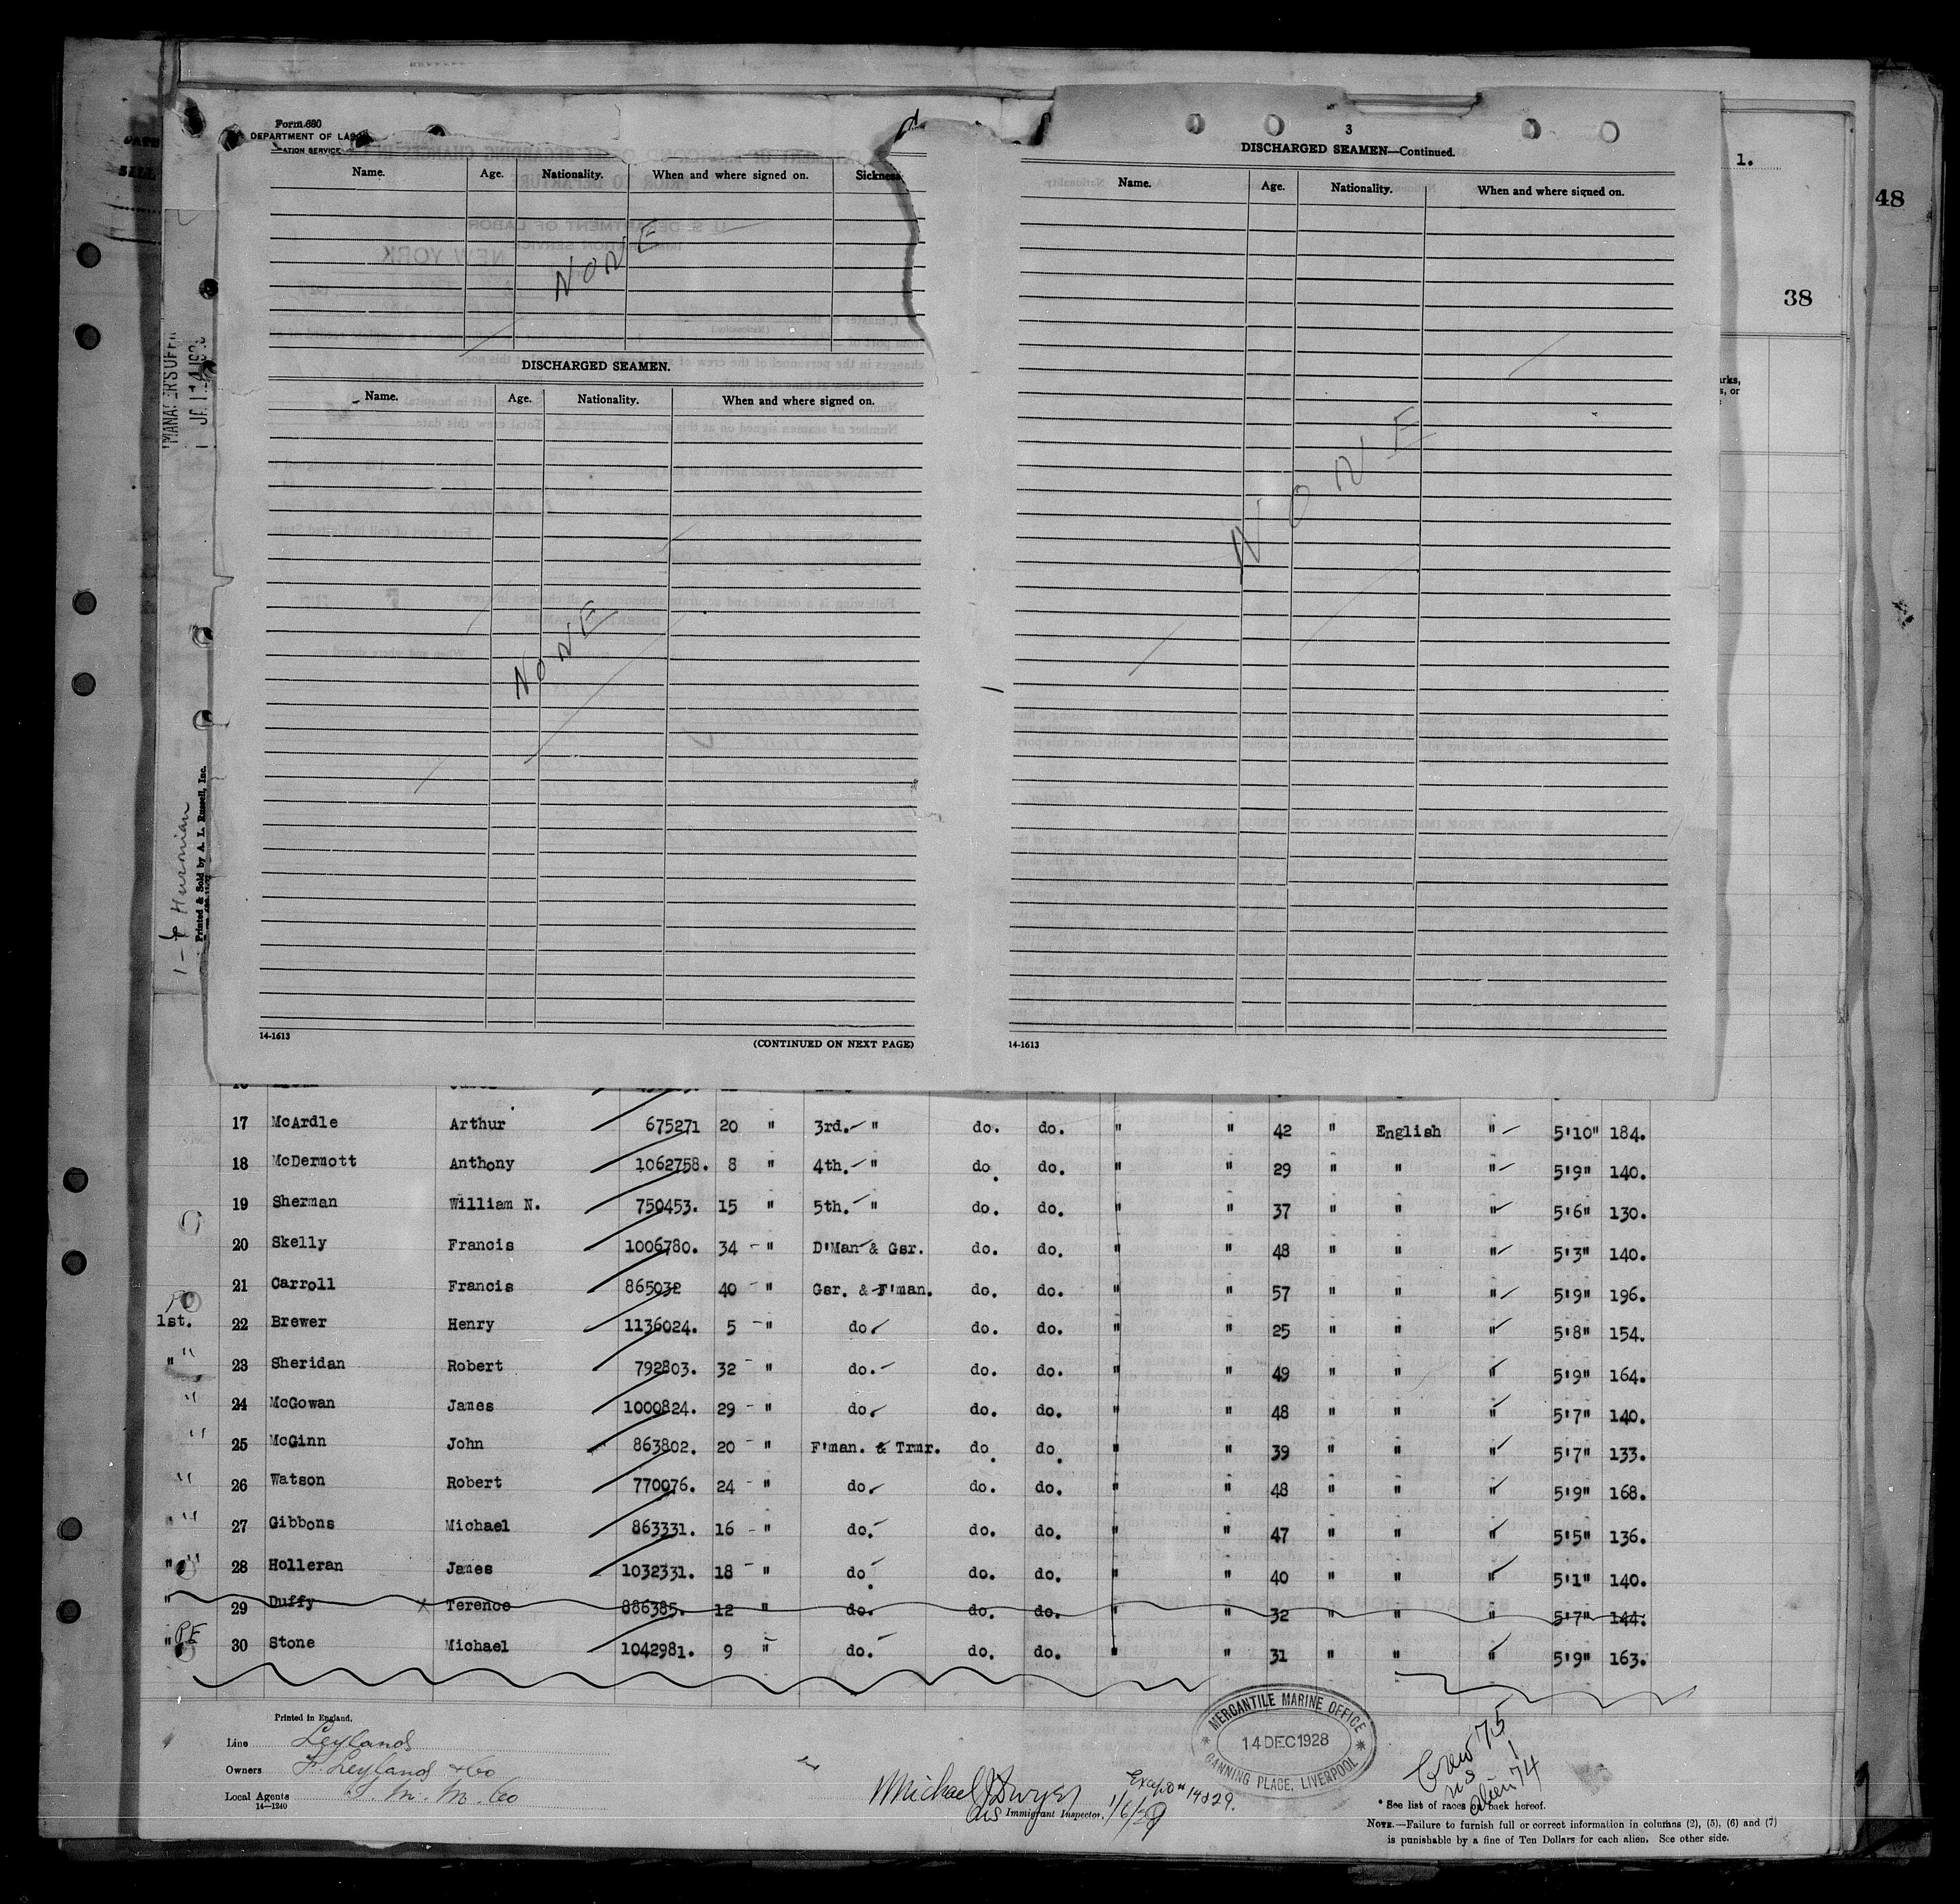 Form 680
DEPARTMENT OF LABOR
ATION SERVICE
Name. Age. Nationality. When and where signed on. Sickness
NONE
DISCHARGED SEAMEN.
Name. Age. Nationality. When and where signed on.
NONE
14-1613
(CONTINUED ON NEXT PAGE)
3
DISCHARGED SEAMEN—Continued.
Name. Age. Nationality. When and where signed on.
NONE
14-1613
1.
48
38
Printed & Sold by A. L. Russell, Inc.
17 McArdle Arthur 675271 20 " 3rd. " do. do. " " 42 " English " 5'10" 184.
18 McDermott Anthony 1062758. 8 " 4th. " do. do. " " 29 " " " 5'9" 140.
19 Sherman William N. 750453. 15 " 5th. " do. do. " " 37 " " " 5'6" 130.
20 Skelly Francis 1006780. 34 " D'Man & Gsr. do. do. " " 48 " " " 5'3" 140.
21 Carroll Francis 865032 40 " Gsr. & F'man. do. do. " " 57 " " " 5'9" 196.
1st. 22 Brewer Henry 1136024. 5 " do. do. do. " " 25 " " " 5'8" 154.
" 23 Sheridan Robert 792803. 32 " do. do. do. " " 49 " " " 5'9" 164.
" 24 McGowan James 1000824. 29 " do. do. do. " " 48 " " " 5'7" 140.
" 25 McGinn John 863802. 20 " F'man. & Trmr. do. do. " " 39 " " " 5'7" 133.
" 26 Watson Robert 770076. 24 " do. do. do. " " 48 " " " 5'9" 168.
" 27 Gibbons Michael 863331. 16 " do. do. do. " " 47 " " " 5'5" 136.
" 28 Holleran James 1032331. 18 " do. do. do. " " 40 " " " 5'1" 140.
" 29 Duffy x Terence 886385. 12 " do. do. do. " " 32 " " " 5'7" 144.
" 30 Stone Michael 1042981. 9 " do. do. do. " " 31 " " " 5'9" 163.
Printed in England.
Line Leylands
Owners F. Leyland & Co
Local Agents I. M. M. Co
14—1240
Michael J Dwyer
Immigrant Inspector. 1/6/29
MERCANTILE MARINE OFFICE
14 DEC 1928
CANNING PLACE, LIVERPOOL
Crew 75
US 1
alien 74
* See list of races on back hereof.
NOTE.—Failure to furnish full or correct information in columns (2), (5), (6) and (7)
is punishable by a fine of Ten Dollars for each alien. See other side.